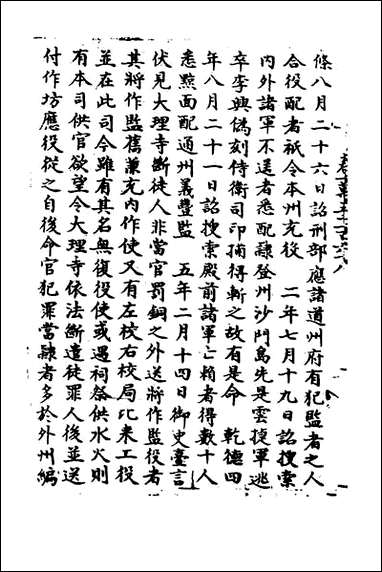 條八月二十六日詔刑部應諸道州府有犯監者之人
合役配者祇令本州充役　二年七月十九日詔搜索
内外諸軍不逞者悉配隸登州沙門島先是雲捷軍逃
卒李興偽刻侍衛司印捕得斬之故有是命　乾德四
年八月二十一日詔搜索殿前諸軍亡賴者得數十人
悉黥面配通州義豐監　五年二月十四日御史臺言
伏見大理寺斷徒人非當官罰銅之外送將作監役者
其將作監舊兼充内作使又有左校右校局比来工役
並在此司今雖有其名無復役使或遇祠祭供水火則
有本司供官欲望令大理寺依法斷遣徒罪人後並送
付作坊應役從之自後命官犯罪當隸者多於外州編